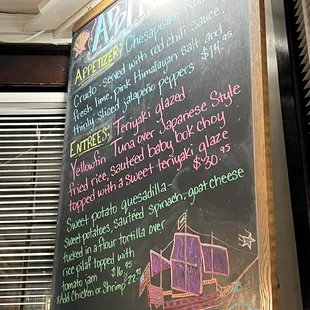 APPETIZER: Chesapeake
Crudo - served with red chili sauce,
fresh lime, pink Himalayan salt and
thinly sliced jalapeño peppers
$14.95
ENTREES: Teriyaki glazed
Yellowfin Tuna over Japanese Style
fried rice, sautéed baby bok choy
topped with a sweet teriyaki glaze
$30.95
Sweet potato quesadilla -
Sweet potatoes, sautéed spinach, goat cheese
tucked in a flour tortilla over
rice pilaf topped with
tomato jam $16.95
*Add Chicken or Shrimp $22.95